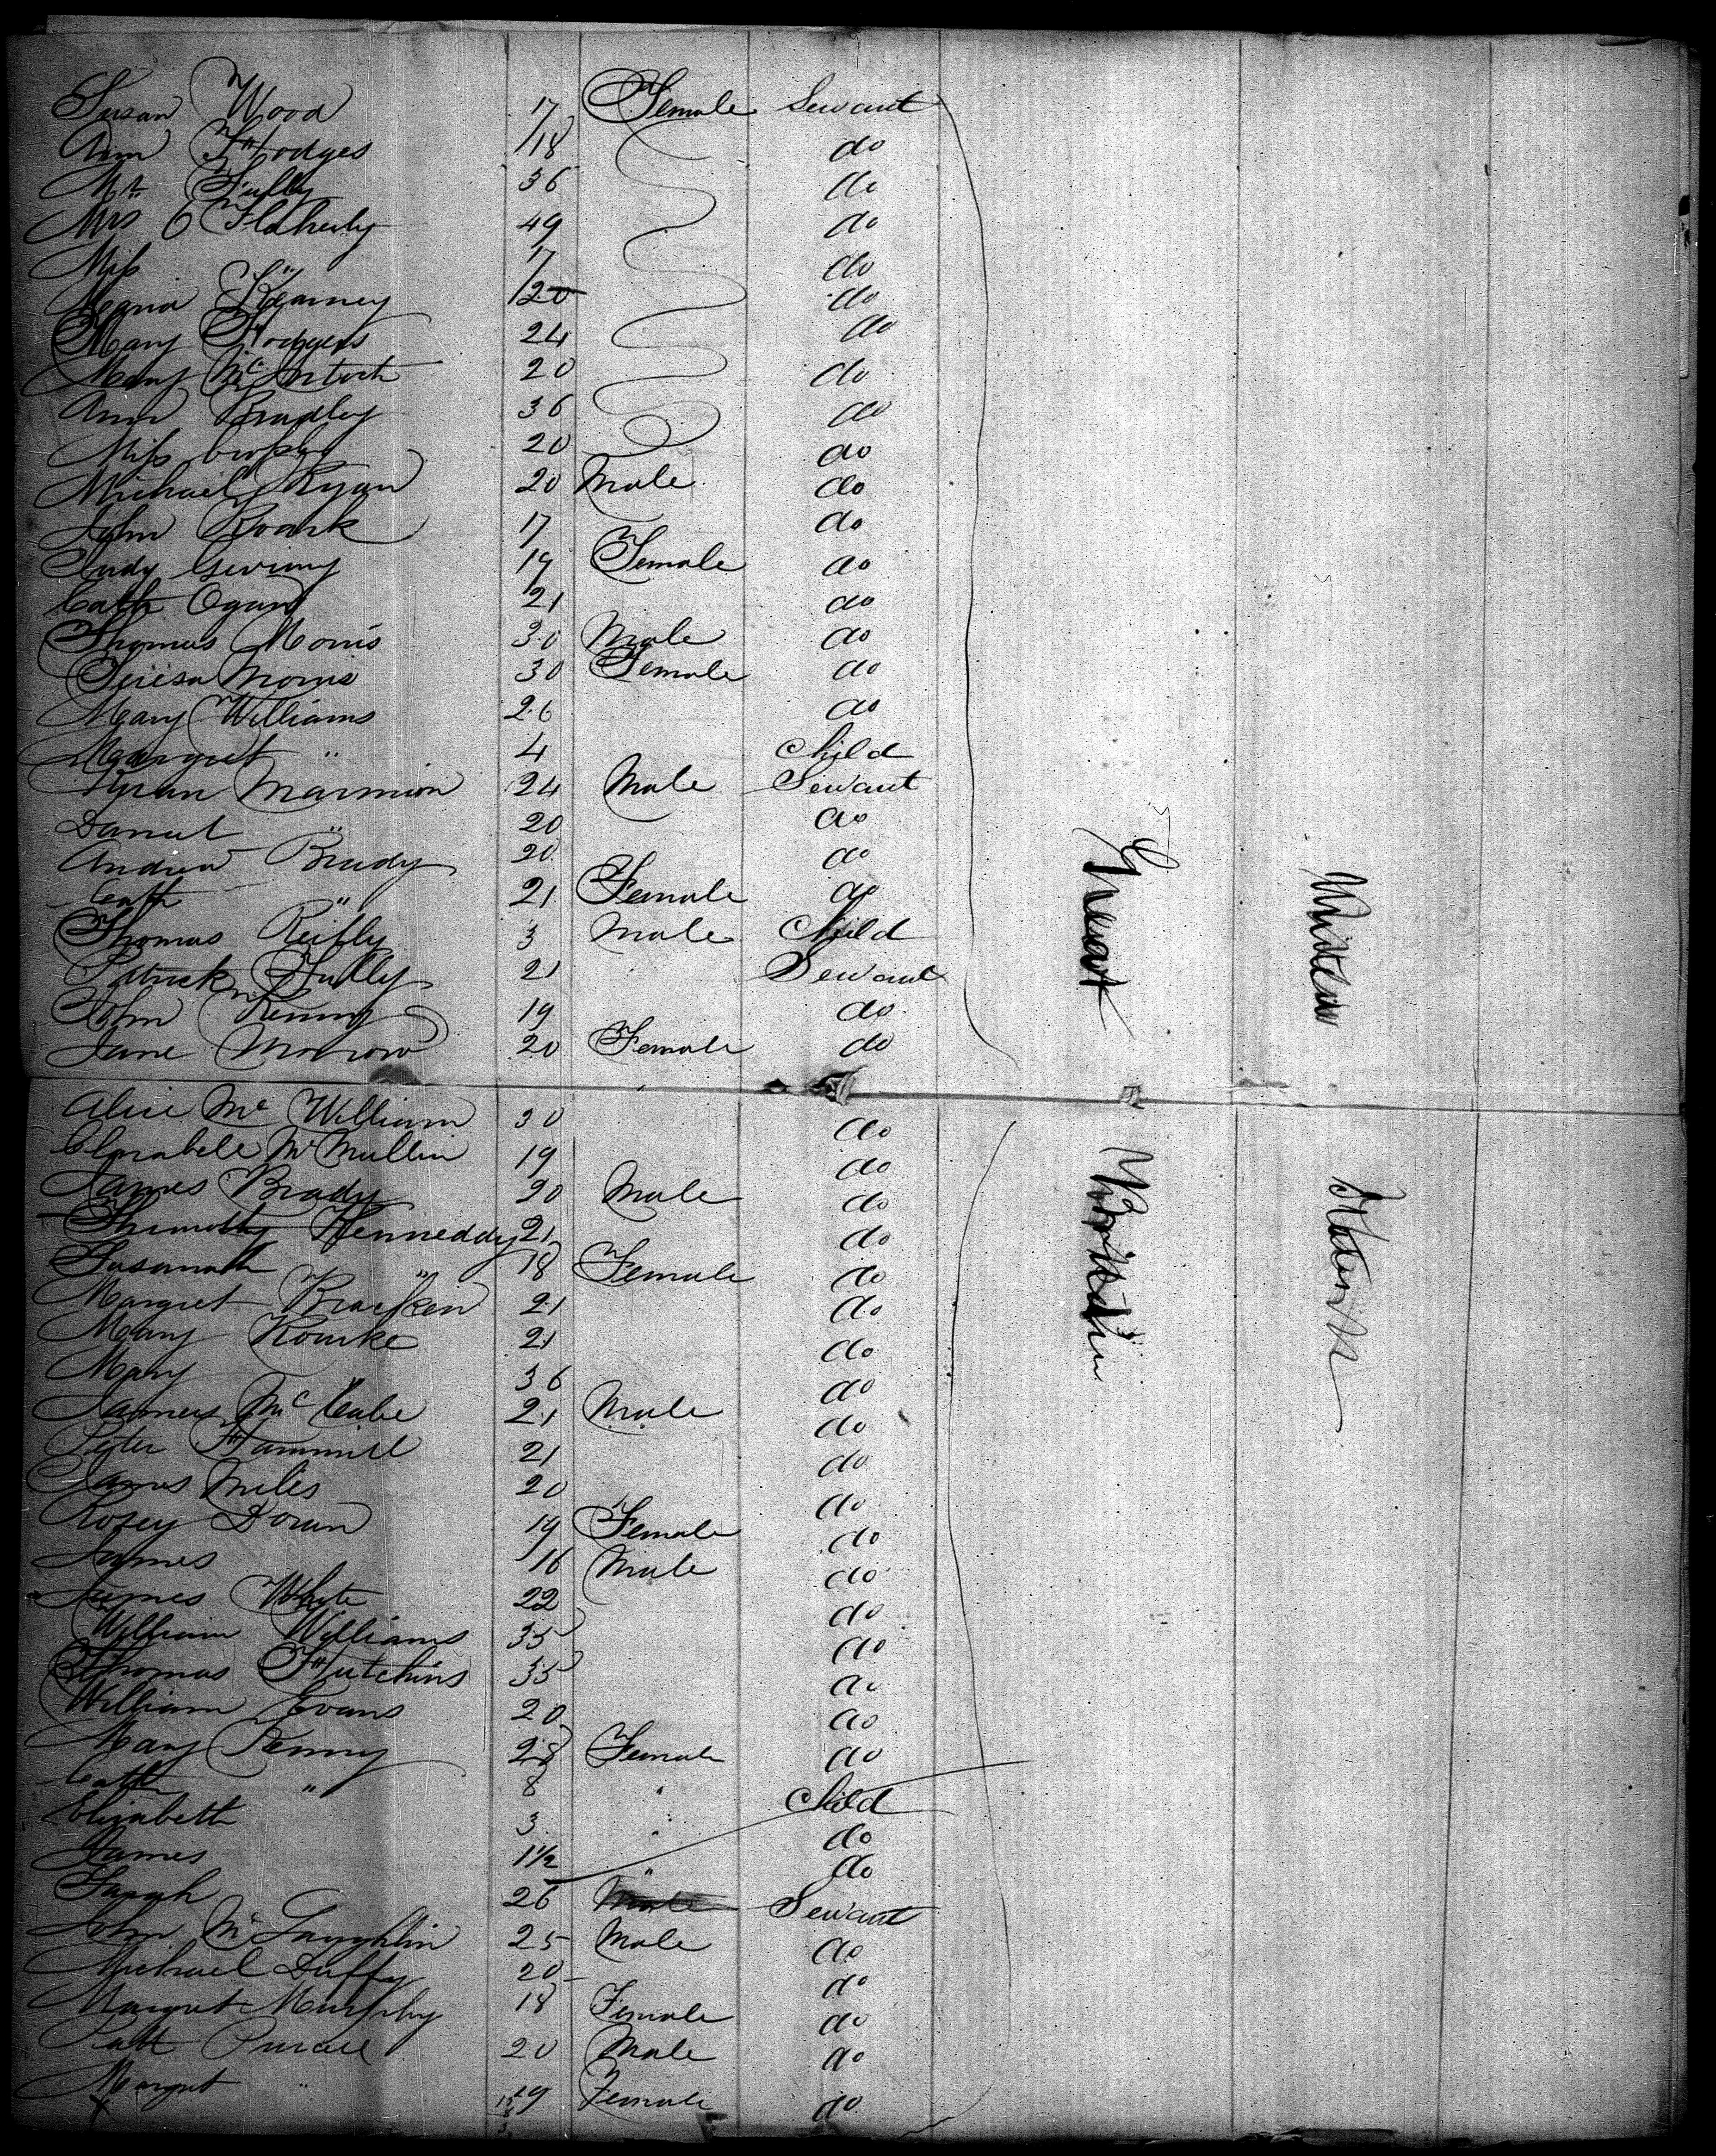 Susan Wood 17 Female Servant
Ann Hodges 18 do
Mr Tully 36 do
Mrs O Flaherty 49 do
Miss " 17 do
Maria Kearney 20 do
Mary Hodgers 24 do
Mary McIntosh 20 do
Ann Bradley 36 do
Miss 20 do
Michael Ryan 20 Male do
John Roark 17 do
Judy 19 Female do
Cath Ogan 21 do
Thomas Morris 30 Male do
Teresa Morris 30 Female do
Mary Williams 26 do
Margret " 4 Child
Kyran Marmion 24 Male Servant
Daniel " 20 do
Andrew Brady 20 do
Cath " 21 Female do
Thomas Reilly 3 Male Child
Patrick Tully 21 Servant
John Kenny 19 do
Jane Morrow 20 Female do
Great Britain
United States
Alice Mc William 30 do
Clarabele McMullin 19 do
James Brady 20 Male do
Thimothy Kenneddy 21 do
Susannah " 18 Female do
Margret Bracken 21 do
Mary Rourke 21 do
Mary 36 do
James McCabe 21 Male do
Peter Hammill 21 do
James Miles 20 do
Rosey Doran 19 Female do
James 16 Male do
James White 22 do
William Williams 35 do
Thomas Hutchins 35 do
William Evans 20 do
Mary Kenny 28 Female do
Cath " 8 " Child
Elizabeth 3 " do
James 1½ " do
Sarah 26 Male Servant
John McLaughlin 25 Male do
Michael Duffy 20 do
Margret Murphy 18 Female do
Patt Purcell 20 Male do
Margret " 19 Female do